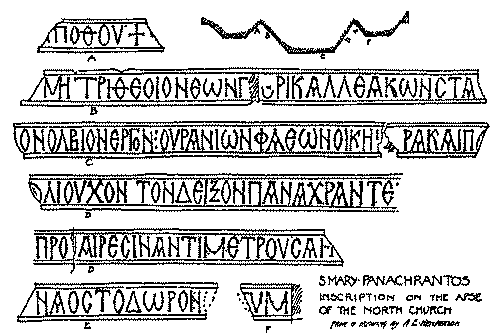 ΠΟΘΟΥ +
A
A B C D E F
ΜΗΤΡΙΘΕΟΙΟΝΕΩΝΓ ΡΙΚΑΛΛΕΑΚΩΝCΤΑ
B
ΟΝΟΛΒΙΟΝΕΡΓΟΝ:ΟΥΡΑΝΙΩΝΦΑΕΩΝΟΙΚΗ ΡΑΚΑΙΠ
C
ΛΙΟΥΧΟΝ ΤΟΝΔΕΙΞΟΝΠΑΝΑΧΡΑΝΤΕ
D
ΠΡΟΑΙΡΕCΙΝΑΝΤΙΜΕΤΡΟΥCΑΗ
D
ΝΑΟCΤΟΔΩΡΟΝ ΥΜ
E F
S MARY·PANACHRANTOS
INSCRIPTION ON THE APSE
OF THE NORTH CHURCH
from a drawing by A E Henderson